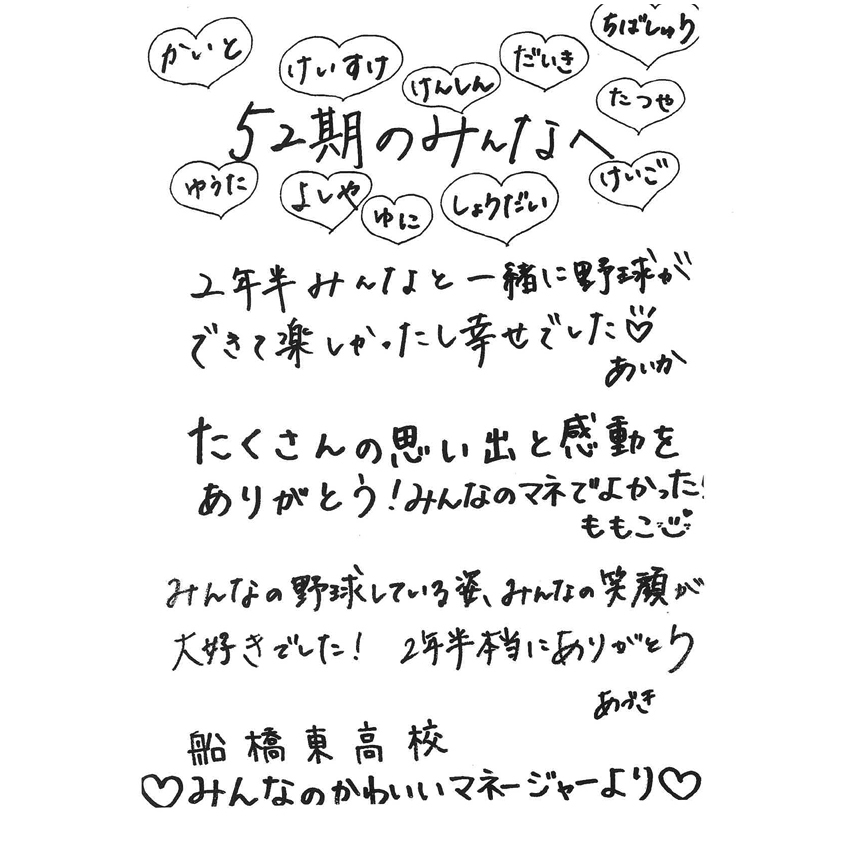 ちばしゅり
かいと
だいき
けいすけ
けんしん
たつや
52期のみんなへ
けいご
ゆうた
よしや
しょりだい
ゆに
2年半みんなと一緒に野球が
できて楽しかったし幸せでした♡
あいか
たくさんの思い出と感動を
ありがとう!みんなのマネでよかった!
ももこ
みんなの野球している姿、みんなの笑顔が
大好きでした! 2年半本当にありがとう
あづき
船橋東高校
♡みんなのかわいいマネージャーより♡